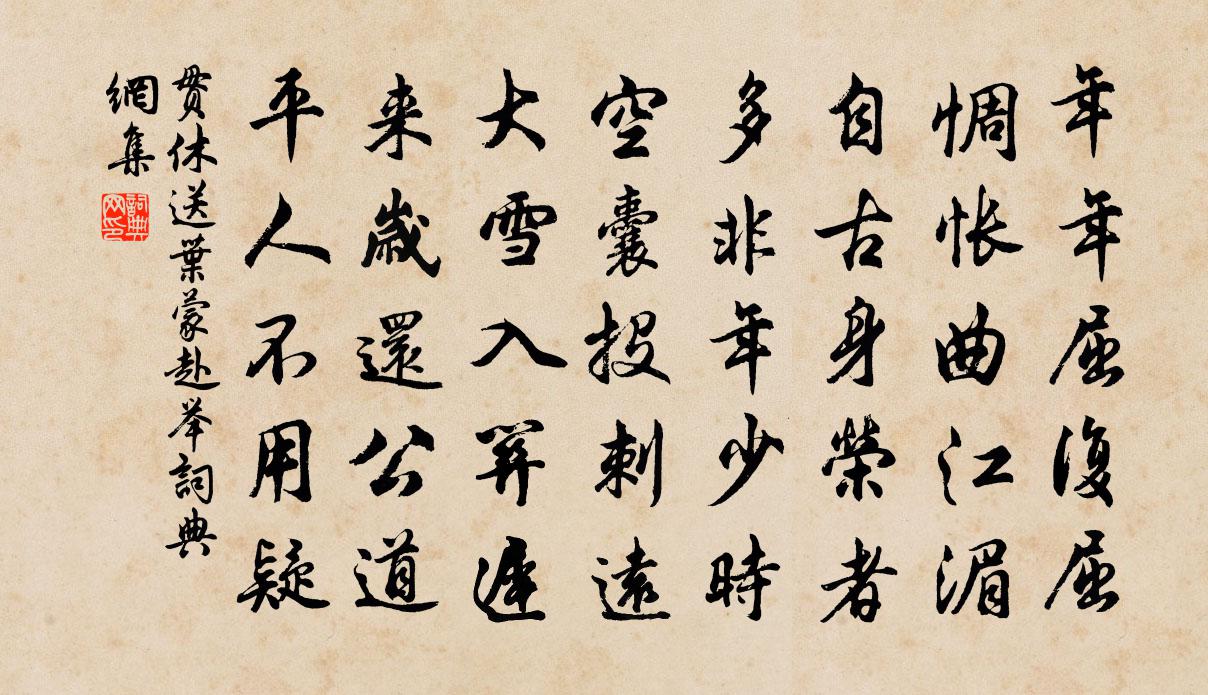 年年屈復屈
惆悵曲江湄
自古身榮者
多非年少時
空囊投刺遠
大雪入關遲
来歲還公道
平人不用疑
貫休送葉蒙赴举詞典
網集
詞典
网印